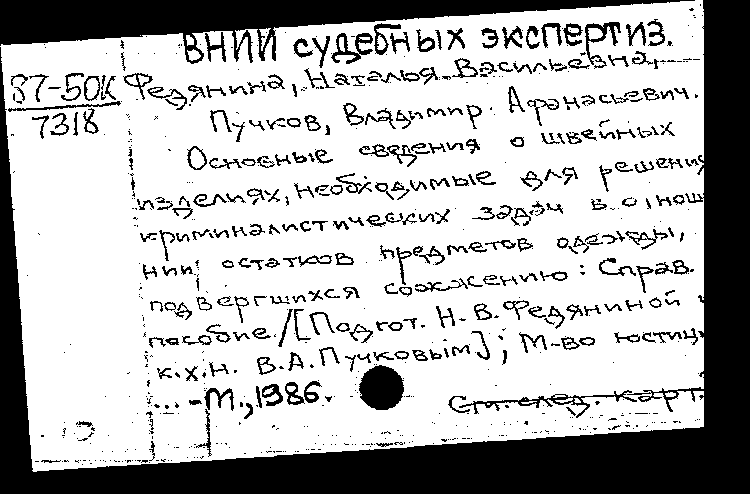 ВНИИ судебных экспертиз.
87-50К Федянина, Наталья Васильевна,
7318 Пучков, Владимир Афанасьевич.
Основные сведения о швейных
изделиях, необходимые для решения
криминалистических задач в отнош
нии остатков предметов одежды,
подвергшихся сожжению: Справ.
пособие. / [Подгот. Н.В. Федяниной и
к.х.н. В.А. Пучковым]; М-во юстиции
... - М., 1986.
См. след. карт.